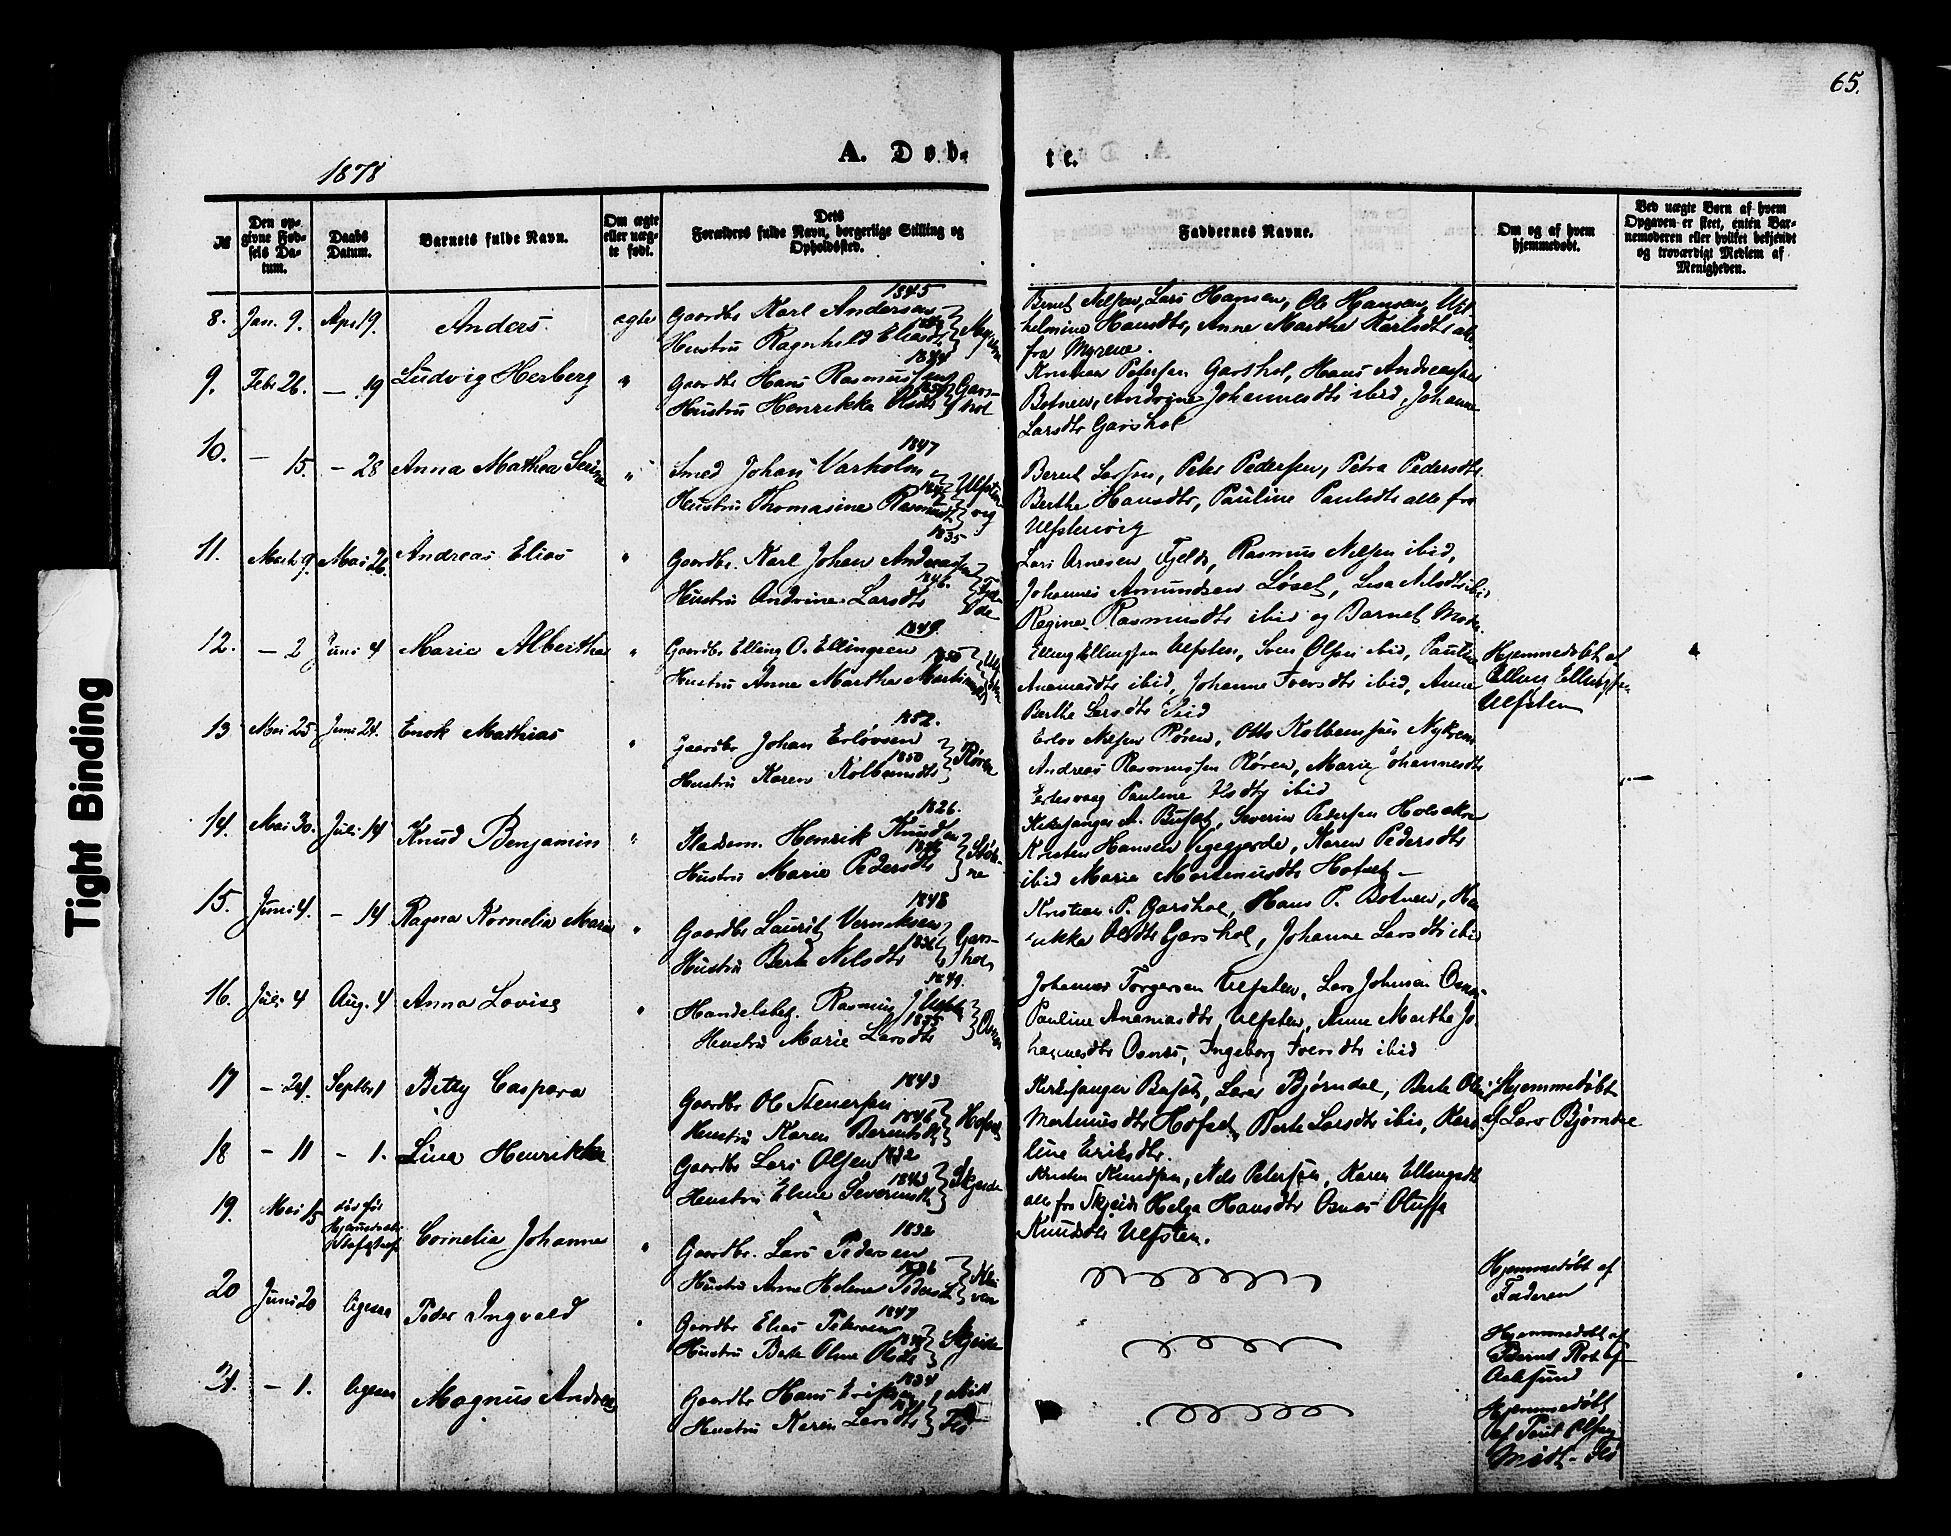 65.
A. Døb-
te.
1878
№
Den op-
givne Fød-
sels Da-
tum.
Daabs
Datum.
Barnets fulde Navn.
Om ægte
eller uæg-
te født.
Dets
Forældres fulde Navn, borgerlige Stilling og
Opholdssted.
Faddernes Navne.
Om og af hvem
hjemmedøbt.
Ved uægte Børn af hvem
Opgaven er skeet, enten Bar-
nemoderen eller hvilket bekjendt
og troværdigt Medlem af
Menigheden.
8. Jan. 9. Apr 19. Anders. ægte
1845
Gaardbr Karl Andersen
Hustru Ragnhild Eliasdt
Bernt Nilsen, Lars Hansen, Ole Hansen, Vil-
helmine Hansdtr, Anne Marthe Karlsdtr alle
fra Myrene.
9. Febr 26. — 19 Ludvig Herberg "
1844
Gaardbr Hans Rasmussen
Hustru Henrikka Olsdtr Gars-
hol
Kristian Petersen Garshol, Hans Andreassen
Botnen, Andrine Johannesdtr ibid, Johanne
Larsdtr Garshol
10. — 15. — 28 Anna Mathea "
1847
Smed Johan Varholm
Hustru Thomasine Rasmusdt Ulfsten
vig
Bernt Larsen, Peter Pedersen, Petra Pedersdtr
Berthe Hansdtr, Pauline Paulsdtr alle fra
Ulfstenvig
11. Marts 9. Mai 26. Andreas Elias "
1835
Gaardbr. Karl Johan Andreassen
1846.
Hustru Andrine Larsdtr
Lars Arnesen Fjelde, Rasmus Nilsen ibid,
Johannes Amundsen Løset, Lisa Nilsdtr ibid
Regine Rasmusdtr ibid og Barnets Moder
12. — 2 Juni 4 Marie Alberthe "
1849.
Gaardbr Elling O. Ellingsen
1850
Hustru Anne Marthe Martinusdt
Elling Ellingsen Ulfsten, Sven Olsen ibid, Pauline
Ananiasdtr ibid, Johanne Iversdtr ibid, Anne
Berthe Larsdtr ibid
Hjemmedøbt af
Elling Ellingsen
Ulfsten
13 Mai 25 Juni 24. Enok Mathias "
1852.
Gaardbr Johan Erlovsen
1850
Hustru Karen Kolbensdtr Røren
Erlov Nilsen Røren, Otto Kolbensen Nykrem
Andreas Rasmussen Røren, Marie Johannesdtr
Eelesvaag Pauline Olsdtr ibid
14. Mai 30. Juli 14 Knud Benjamin "
1826.
Henrik Knudsen
Hustru Marie Pedersdtr
Kirkesanger A. Busæt, Severin Pedersen Holsekre
Kristen Hansen Vigegjerde, Karen Pedersdtr
ibid Marie Martinusdtr Hofset —
15. Juni 4. — 14 Ragna Kornelia Marie "
1848
Gaardbr Laurits Verniksen
Hustru Berte Nilsdtr Gars-
hol
Kristian P. Garshol, Hans P. Botnen, Hen
rikke Olsdtr Garshol, Johanne Larsdtr ibid
16. Juli 4 Aug. 4 Anna Lovise "
1849.
Handelsbetj. Rasmus J Ulfsten
1855
Hustru Marie Larsdtr Osnes
Johannes Torgersen Ulfsten, Lars Johnsen Osnes
Pauline Ananiasdtr, Ulfsten, Anne Marthe Jo-
hannesdtr Osnes, Ingeborg Iversdtr ibid
17 — 24. Septbr 1 Betty Caspara
1843
Gaardbr Ole Stenersen
1846
Hustru Karen Berntsdt Hofset
Kirkesanger Busæt, Lars Bjørndal, Berte Oline
Martinusdtr Hofset, Berte Larsdtr ibid, Karo
line Eriksdtr.
Hjemmedøbt
af Lars Bjørndal
18 — 11 — 1. Lina Henrikka
1832
Gaardbr Lars Olsen
1843
Hustru Eline Severinsdt Skjeide
Kristen Knudsen, Nils Petersen, Karen Ellingsdt
alle fra Skjeide Helga Hansdtr Osnes Oluffa
Knudsdtr Ulfsten.
19. Mai 15 død før
Cornelia Johanna "
1832
Gaardbr. Lars Pedersen
1836
Hustru Anne Helene Pedersdt Klei
ven
Hjemmedøbt af
Faderen
20 Juni 20 ligesaa Peder Ingvald "
1847
Gaardbr Elias Petersen
Hustru Berte Oline Olsdt Skjeide
Hjemmedøbt af
Bernt Rot af
Aalesund
21. — 1. ligesaa Magnus Andreas
1834
Gaardbr Hans Eriksen
Hustru Karen Larsdtr Mitt
Flø
Hjemmedøbt
af Olsen
Midt-Flø
Tight Binding